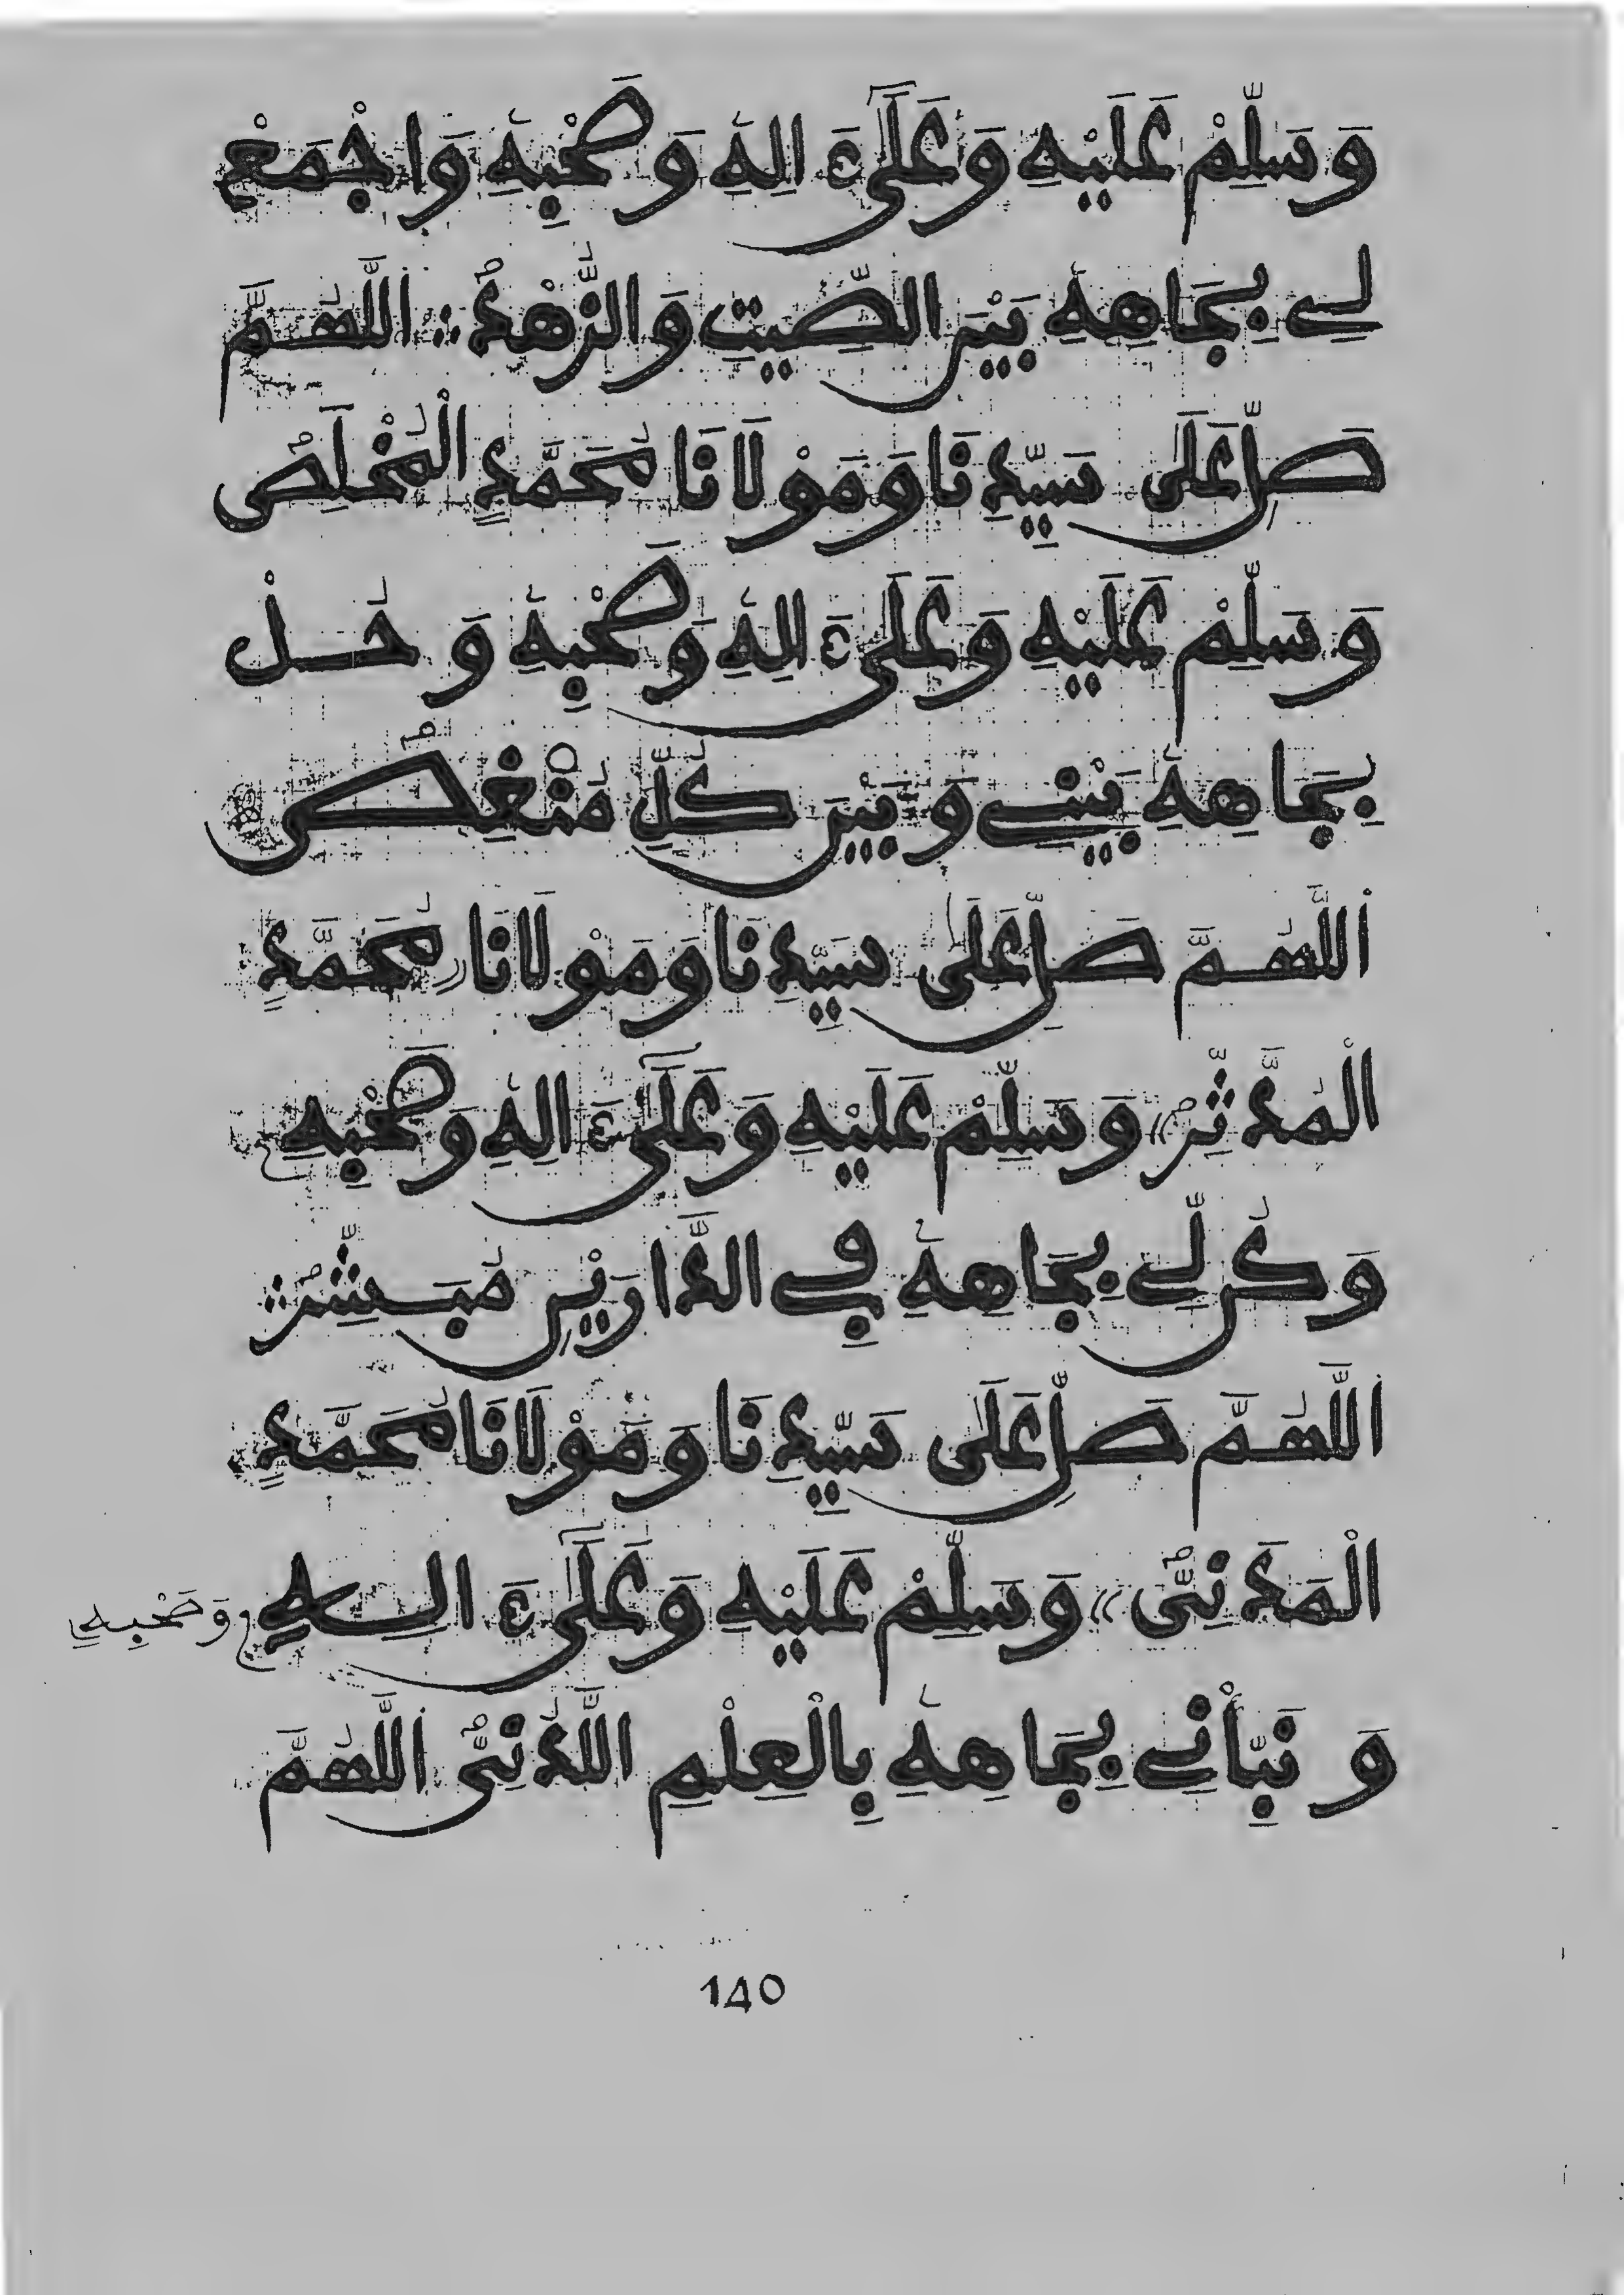 وَسَلِّمْ عَلَيْهِ وَعَلَىٰٓ ءَالِهِ وَصَحْبِهِ وَاجْمَعْ
لِي بِجَاهِهِ بَيْنَ الصِّيتِ وَالزُّهْدِ ∴ اللَّهُمَّ
صَلِّ عَلَى سَيِّدِنَا وَمَوْلَانَا مُحَمَّدٍ الْمُخْلَصِ
وَسَلِّمْ عَلَيْهِ وَعَلَىٰٓ ءَالِهِ وَصَحْبِهِ وَحُلْ
بِجَاهِهِ بَيْنِي وَبَيْنَ كُلِّ مُنْغِصٍ
اللَّهُمَّ صَلِّ عَلَى سَيِّدِنَا وَمَوْلَانَا مُحَمَّدٍ
الْمُدَّثِّرِ» وَسَلِّمْ عَلَيْهِ وَعَلَىٰٓ ءَالِهِ وَصَحْبِهِ
وَكُن لِّي بِجَاهِهِ فِي الدَّارَيْنِ مُبَشِّرًا ∴
اللَّهُمَّ صَلِّ عَلَى سَيِّدِنَا وَمَوْلَانَا مُحَمَّدٍ
الْمَدَنِيِّ» وَسَلِّمْ عَلَيْهِ وَعَلَىٰٓ ءَالِهِ وَصَحْبِهِ
وَنَبِّأْنِي بِجَاهِهِ بِالْعِلْمِ اللَّدُنِّيِّ اللَّهُمَّ
140